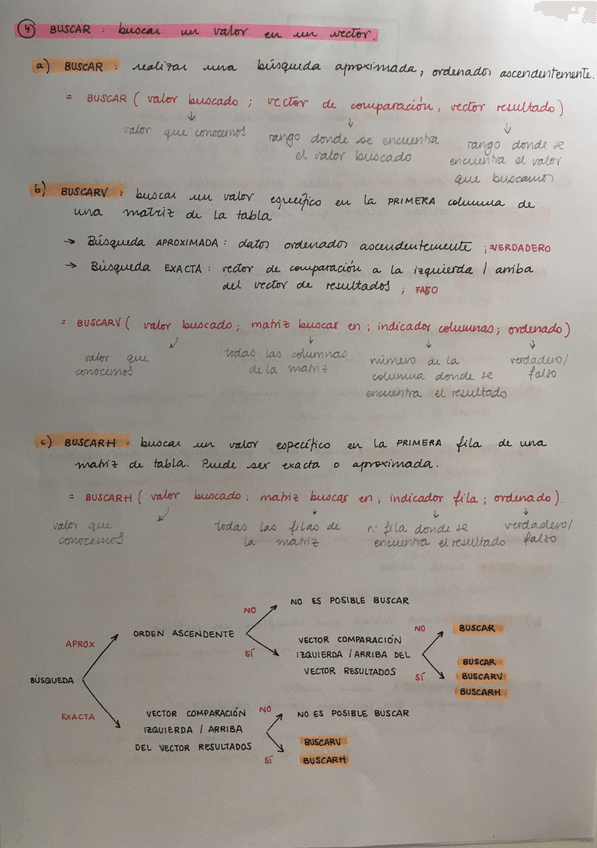 4 BUSCAR : buscar un valor en un vector.
a) BUSCAR : realizar una búsqueda aproximada, ordenados ascendentemente.
= BUSCAR ( valor buscado ; vector de comparación, vector resultado )
valor que conocemos
rango donde se encuentra
el valor buscado
rango donde se
encuentra el valor
que buscamos
b) BUSCARV : buscar un valor específico en la PRIMERA columna de
una matriz de la tabla
→ Búsqueda APROXIMADA : datos ordenados ascendentemente ; VERDADERO
→ Búsqueda EXACTA : vector de comparación a la izquierda / arriba
del vector de resultados ; FALSO
= BUSCARV ( valor buscado ; matriz buscar en ; indicador columnas ; ordenado )
valor que
conocemos
todas las columnas
de la matriz
número de la
columna donde se
encuentra el resultado
verdadero/
falso
c) BUSCARH : buscar un valor específico en la PRIMERA fila de una
matriz de tabla. Puede ser exacta o aproximada.
= BUSCARH ( valor buscado ; matriz buscar en ; indicador fila ; ordenado ).
valor que
conocemos
todas las filas de
la matriz
nº fila donde se
encuentra el resultado
verdadero/
falso
BÚSQUEDA
APROX
ORDEN ASCENDENTE
NO
NO ES POSIBLE BUSCAR
SÍ
VECTOR COMPARACIÓN
IZQUIERDA / ARRIBA DEL
VECTOR RESULTADOS
NO
BUSCAR
SÍ
BUSCAR
BUSCARV
BUSCARH
EXACTA
VECTOR COMPARACIÓN
IZQUIERDA / ARRIBA
DEL VECTOR RESULTADOS
NO
NO ES POSIBLE BUSCAR
SÍ
BUSCARV
BUSCARH